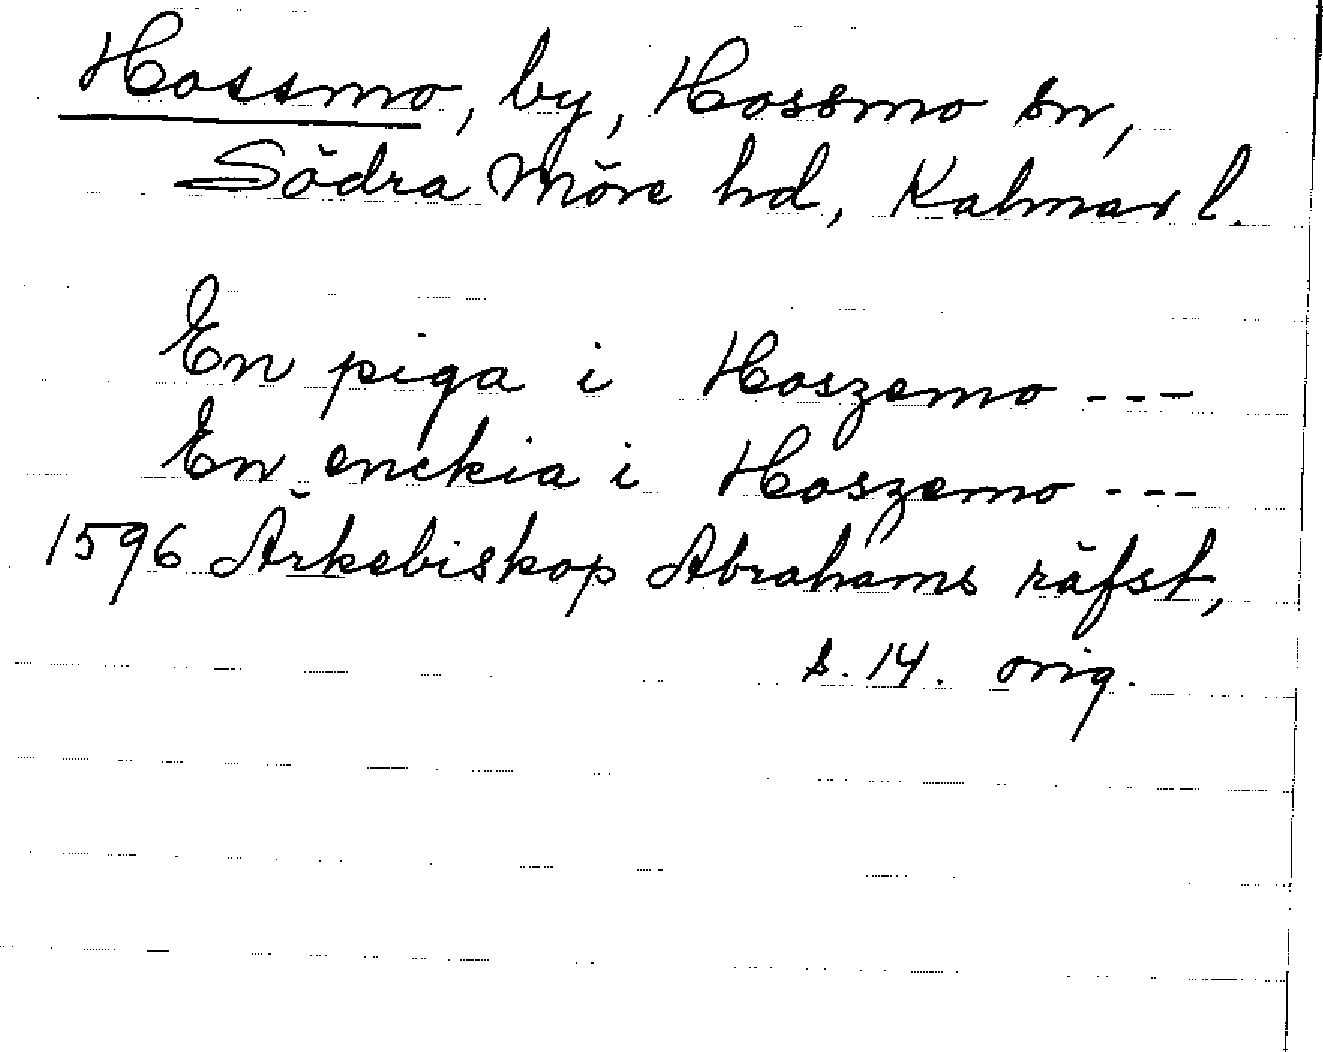 Hossmo, by, Hossmo sn,
Södra Möre hd, Kalmar l.
En piga i Hoszemo ---
En enckia i Hoszemo ---
1596 Ärkebiskop Abrahams räfst,
s. 14. orig.